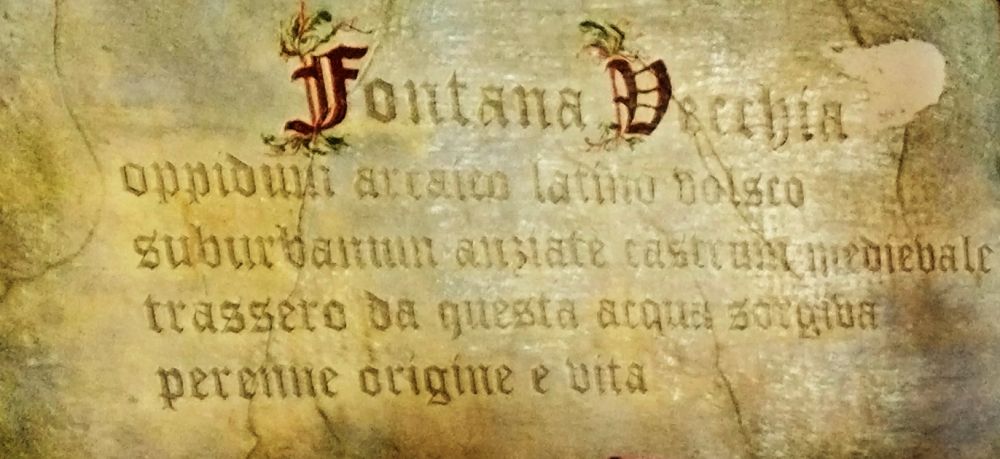 Fontana Vecchia
oppidum arcaico latino volsco
suburbanum anziate castrum medievale
trassero da questa acqua sorgiva
perenne origine e vita